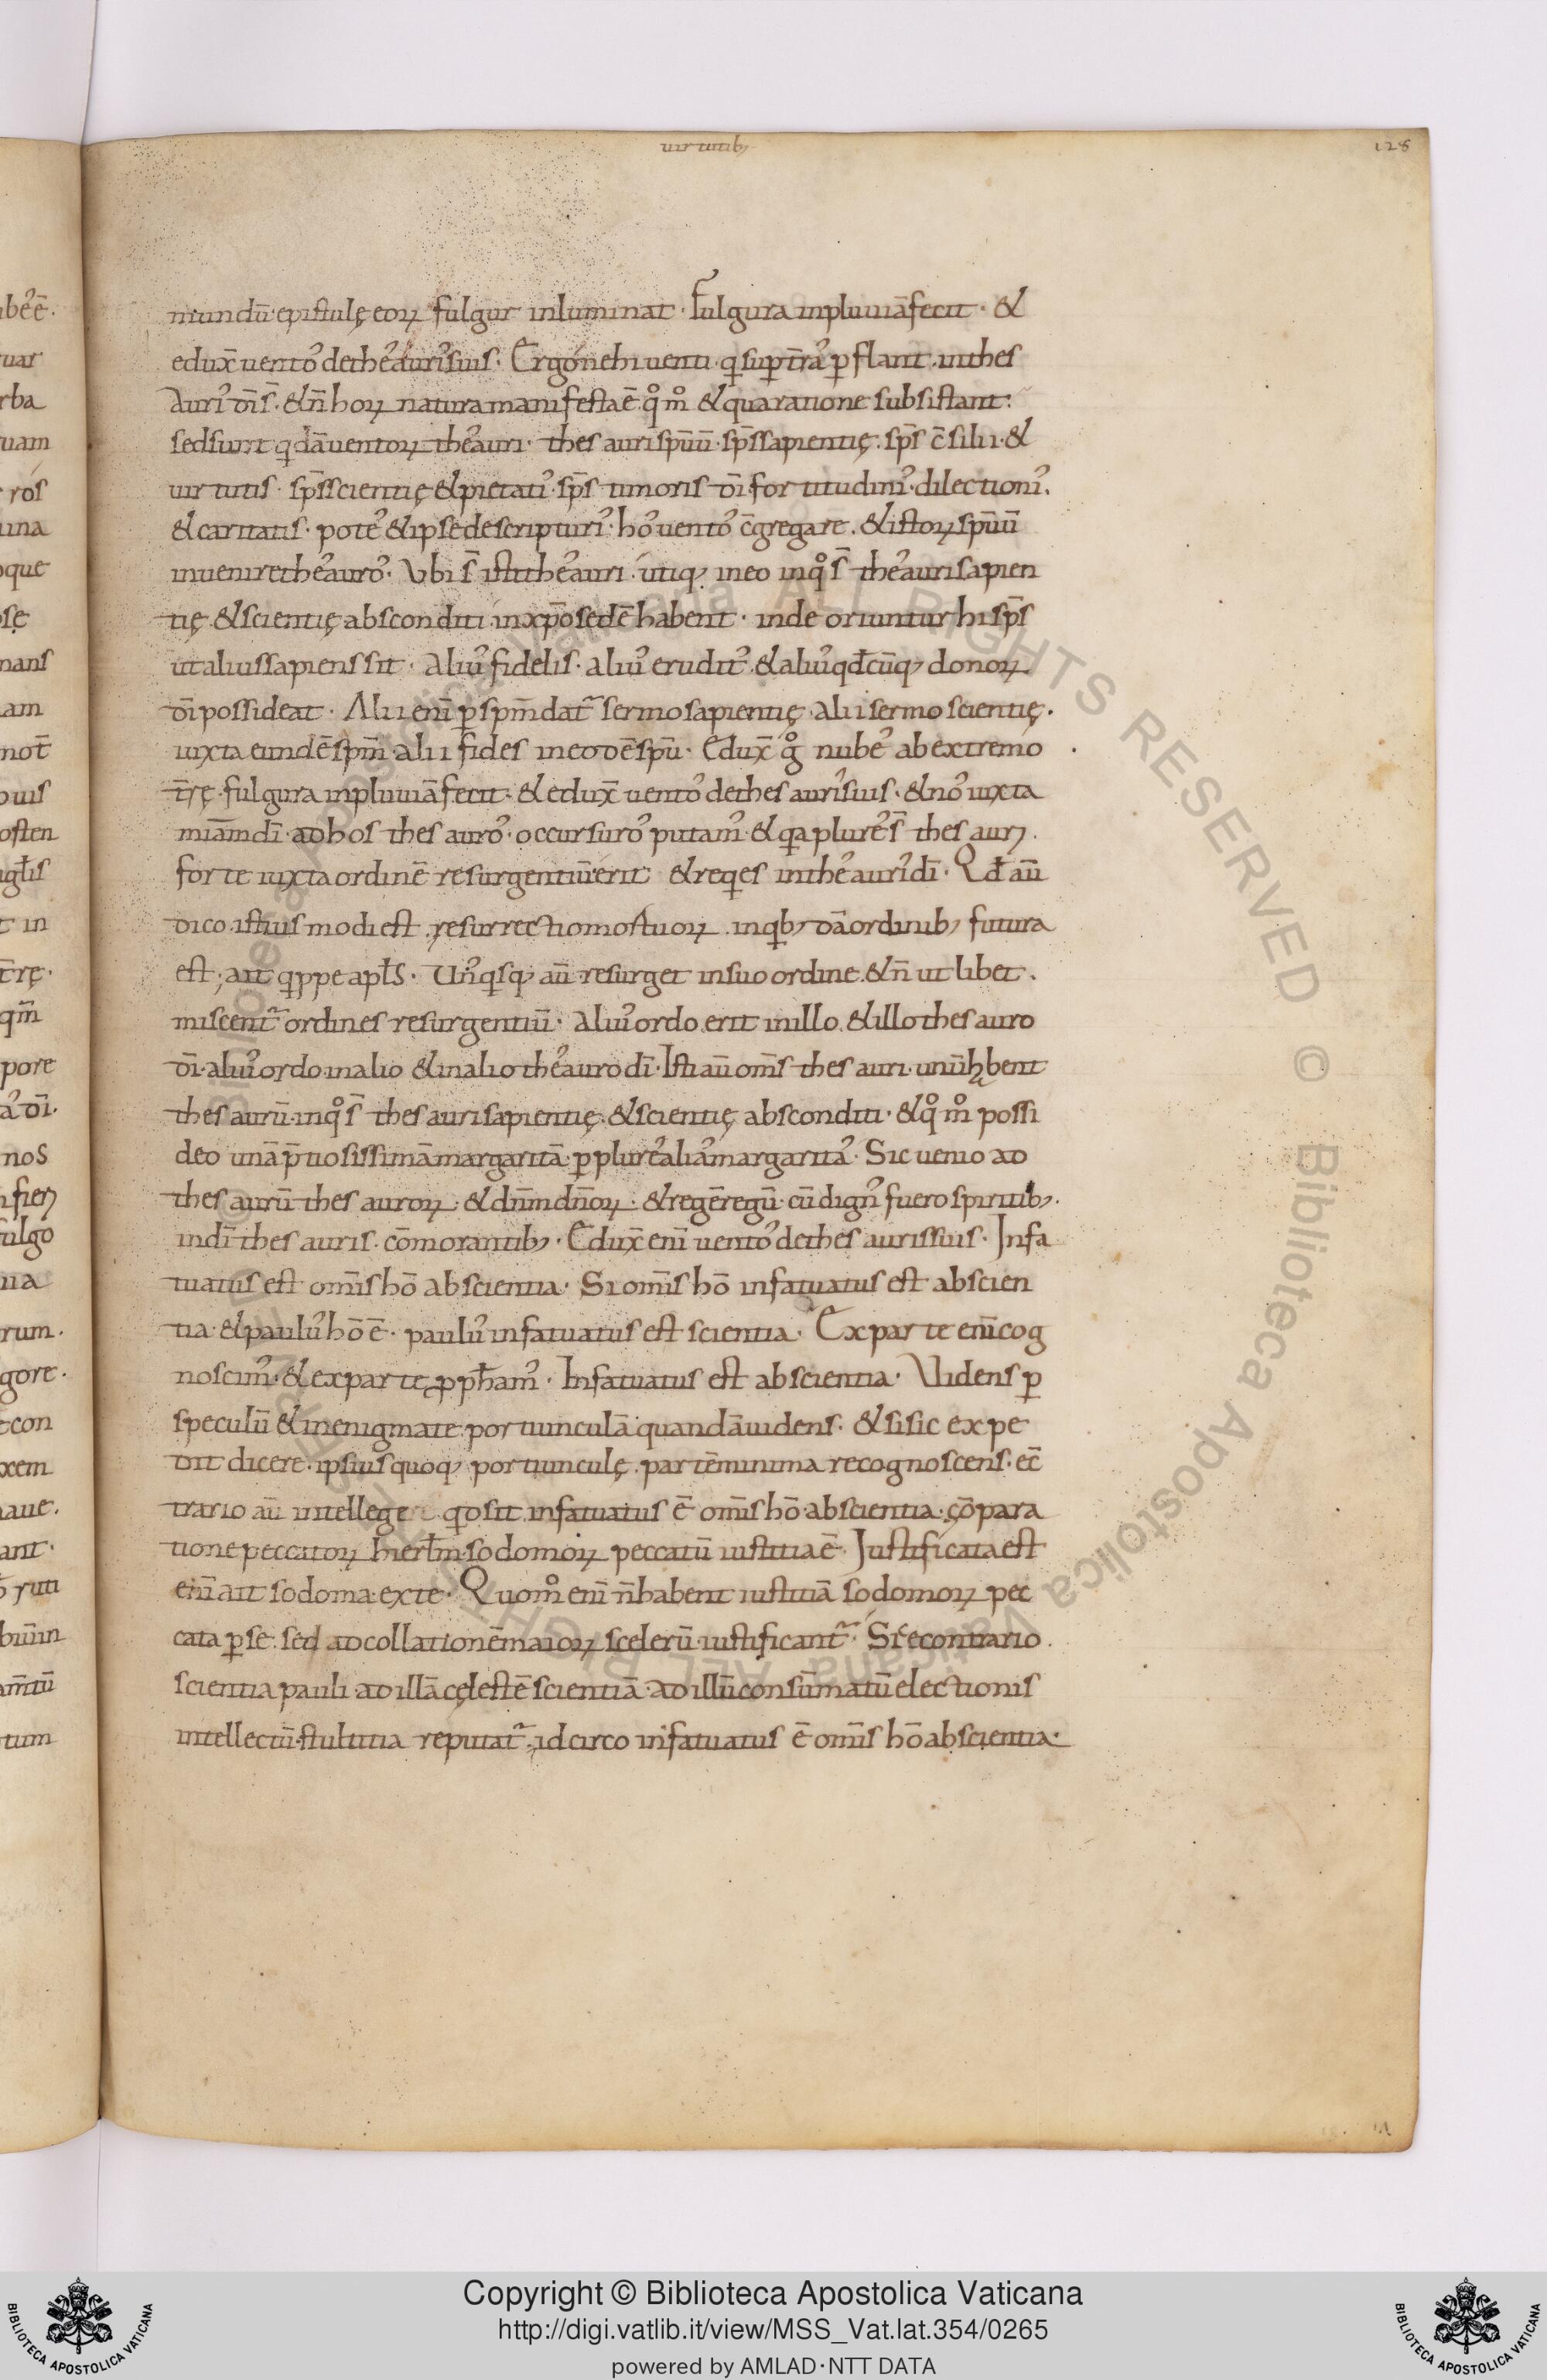 uirtutib;
128
mundū epistulę eoꝝ fulgur inluminat · Fulgura inpluuiā fecit · &
edux̄ uento᾽ dethe᾽auri᾽suis · Ergóne hi uenti · q̇ sup t̄ra᾽ ꝑflant · inthes
Auri᾽ dī s̄ · & n̄ hoꝝ natura manifesta ē · qo mo & qua ratione subsistant:
sed sunt q̇dā uentoꝝ the᾽auri · thesauri spūū · sp̄s sapientię · sp̄s c̄silii · &
uirtutis · sp̄s scientię & pietati᾽ · sp̄s timoris dī · fortitudini᾽ · dilectioni᾽ ·
& caritatis · pote᾽ & ipse de scripturi᾽ · ho᾽ uento᾽ c̄gregare · & istoꝝ spūū
inuenire the᾽auro᾽ · Vbi s̄ isti the᾽auri · útiq; in eo inqo s̄ the᾽auri sapien
tię & scientię absconditi · inxp̄o sedē habent · inde oriuntur hi sp̄s
ut alius sapiens sit · aliu᾽ fidelis · aliu᾽ erudit᾽ · & aliu᾽ qđcūq; donoꝝ
dī possideat · Alii enī ꝑ sp̄m dat᷑ sermo sapientię · alii sermo scientię ·
iuxta eundē sp̄m · alii fides in eodē spū · Edux̄ go nube᾽ ab extremo
t̄rę · fulgura inpluuiā fecit · & edux̄ uento᾽ dethesauri᾽suis · & no᾽ iuxta
miām dī · ad hos thesauro᾽ · occursuro᾽ putam᾽ · & q̇a plure᾽ s̄ thesauꝝ ·
forte iuxta ordinē resurgentiū erit & req̇es inthe᾽auri᾽ dī · Qđ aū
dico istius modi est · resurrectio mortuoꝝ · inq̇b; dā ordinib; futura
est; ait q̇ppe apłs · Un᾽q̇sq; aū resurget insuo ordine · & n̄ ut libet ·
miscent᷑ ordines resurgentiū · aliu᾽ ordo erit inillo · & illo thesauro
dī · aliu᾽ ordo inalio & inalio the᾽auro dī · Isti aū om̄s thesauri · unū hꝫbent
thesaurū · inqo s̄ thesauri sapientię · & scientię absconditi · & qo mo possi
deo unā p̄tiosissimā margaritā · ꝑ plure᾽ alia᾽ margarita᾽ · Sic uenio ad
thesaurū thesauroꝝ · & dn̄m dn̄oꝝ · & regē regū · cū dign᾽ fuero spiritib; ·
indī thesauris · cōmorantib; · Edux̄ enī uento᾽ dethesauris suis · Infa
tuatus est om̄is hō abscientia · Si om̄is hō infatuatus est abscien
tia · & paulu᾽ hō ē · paulu᾽ infatuatus est scientia · Ex parte enī cog
noscim᾽ · & exparte ꝓph̄am᾽ · Infatuatus est abscientia · Uidens ꝑ
speculū & in enigmate · portiunculā quandā uidens · & si sic expe
dit dicere · ipsius quoq; portiunculę · partē minima recognoscens · ec̄
trario aū intellege q̇d sit infatuatus ē om̄is hō · abscientia · cōpara
tione peccatoꝝ hierłm · sodomoꝝ peccatū iustitia ē · Justificata est
enī ait sodoma · exte · Quomo enī n̄ habent iustitiā sodomoꝝ pec
cata ꝑ se · sed ad collationē maioꝝ scelerū · iustificant᷑ · Sic econtrario ·
scientia pauli ad illā cęlestē scientiā · ad illū consūmatū electionis
intellectū · stultitia reputat᷑ · idcirco infatuatus ē om̄is hō abscientia ·
Copyright © Biblioteca Apostolica Vaticana
http://digi.vatlib.it/view/MSS_Vat.lat.354/0265
powered by AMLAD·NTT DATA